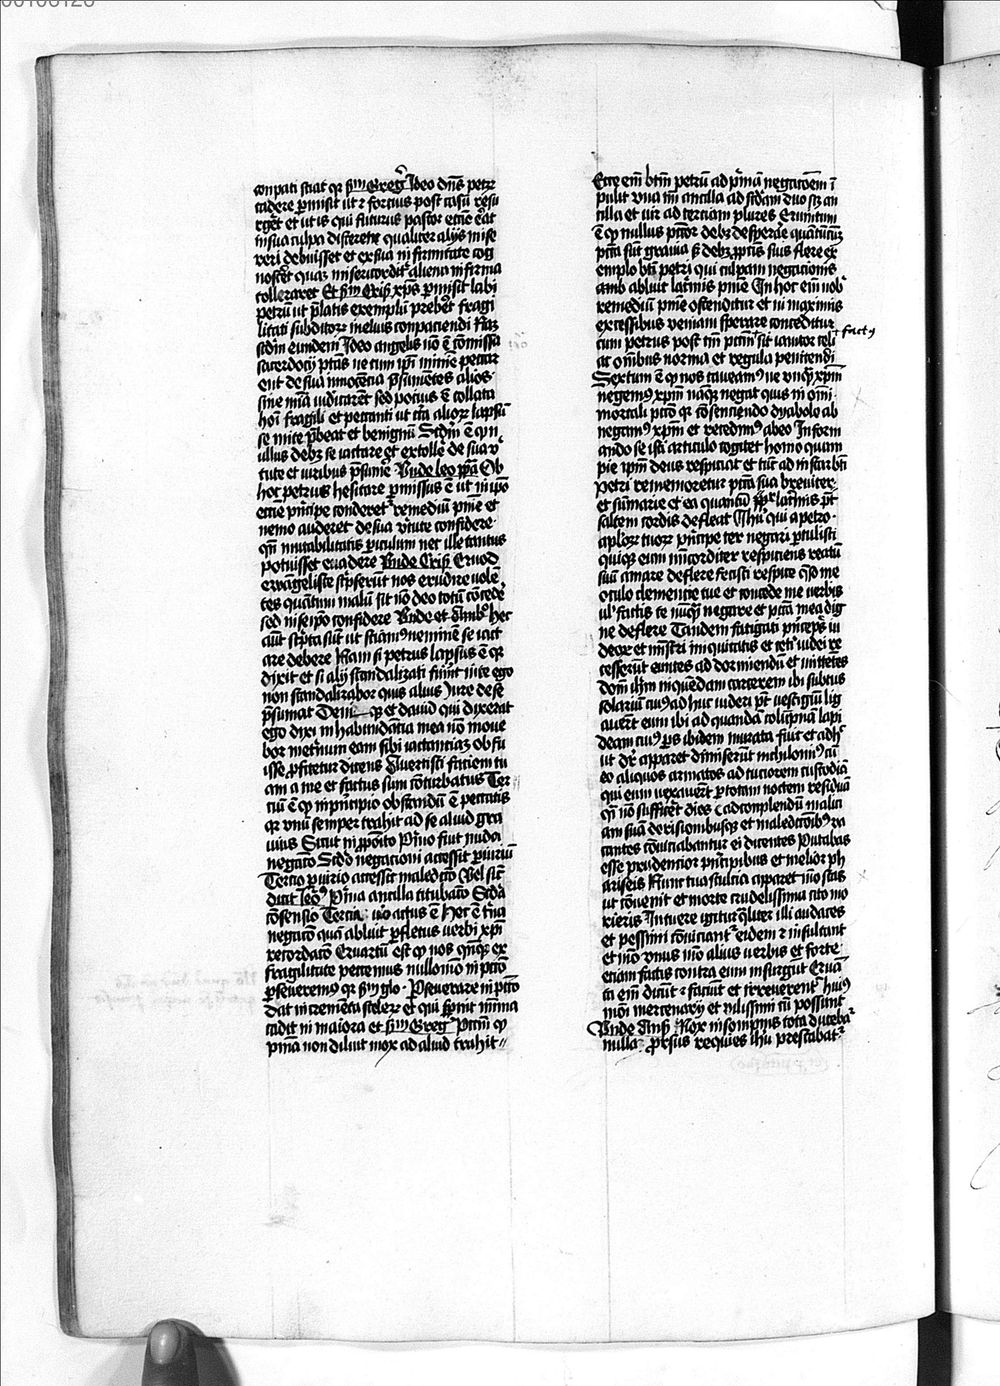 conpati sciat qr scdm Greg Ideo dns petrum
cadere pmisit ut z forcius post casum resu
rgeret et ut is qui futurus pastor eccie erat
in sua culpa disceret qualiter alijs mise
reri debuisset et ex sua infirmitate cog
nosceret quam misericorditer aliena infirma
tolleraret Et scdm Cris xps pmisit labi
petrum ut platis exemplum preberet fragi
litati subditorum melius conpaciendi Nam
scdm eundem Ideo angelis non e comissa
sacerdocij ptas ne cum ipi minime peccar
ent de sua innocencia psumentes alios
sine mia iudicarent sed pocius e collata
hoi fragili et peccanti ut circa aliorum lapsum
se mite prebeat et benignum Scdm e qp n
ullus debet se iactare et extollere de sua vir
tute et viribus psumere Unde leo papa Ob
hoc petrus hesitare pmissus e ut in ipo
eccie principe conderetur remedium pnie et
nemo auderet de sua virtute confidere
qn mutabilitatis periculum nec ille tantus
potuisset euadere Unde Cris Quod
ewangeliste scripserunt nos erudire volen
tes quantum malum sit non deo totum concedere
sed in seipo confidere
aut scripta sunt ut sciamus neminem se iact
are debere Nam si petrus lapsus e qr
dixit et si alij scandalizati fuerint in te ego
non scandalizabor quis alius iure de se
psumat Deni qp et dauid qui dixerat
ego dixi in habundancia mea non moue
bor in eternum eam sibi iactanciam obfu
isse profitetur dicens Auertisti faciem tu
am a me et factus sum conturbatus Ter
cium e qp in principio obstandum e peccatis
qr unum semper trahit ad se aliud gra
uius Sicut in pposito Primo fuit nuda
negacio Scdo negacioni accessit periurium
Tercio periurio accessit maledictio Vel sicut
dicit Prima ancilla titubacio Scda
consensio Tercia uero actus e hec e trina
negacio quam abluit p fletus verbi xpi
recordacio Quartum est qp nos quumque ex
fragilitate peccemus nullomodo in pcco
pseueremus qr scdm glo Pseuerare in pcco
dat incrementa scelerum et qui spernit minima
cadit in maiora et scdm Greg Pccm qp
pnia non diluit mox ad aliud trahit
Ecce enim btm petrum ad primam negacionem i
pulit una tm ancilla ad scdam duo scz an
cilla et vir ad terciam plures Quintum
e qp nullus pccor debet desperare quantumcumque
pcca sint grauia sed debet pccis suis flere ex
emplo bti petri qui culpam negacionis
amb abluit lacrimis pnie In hoc enim nobis
remedium pnie ostenditur et in maximis
excessibus veniam sperare conceditur
cum petrus post tm pccm sit ianitor celi factus
ac omnibus norma et regula penitendi
Sextum e qp nos caueamus ne umquam xpm
negemus xpm namque negat quis in omni
mortali pcco qr consenciendo dyabolo ab
negamus xpm et recedimus ab eo Inform
ando se isti articulo cogitet homo quam
pie ipm deus respiciat et tunc ad instar bti
Petri rememoretur pcca sua breuiter
et summarie et ea quantum ppr lacrimis pt
saltem cordis defleat Ihu qui a petro
aplorum tuorum principe ter negari ptulisti
quique eum misericorditer respiciens reatum
suum amare deflere fecisti respice queso me
oculo clemencie tue et concede me verbis
vel factis te numquam negare et pcca mea dig
ne deflere Tandem fatigati principes iu
deorum et ministri iniquitatis et ceteri iudei re
cesserunt euntes ad dormiendum et mittetes
domini ihm in quendam carcerem ibi subtus
solarium cuius ad huc videri pt uestigium lig
auerunt eum ibi ad quandam columpnam lapi
deam cuius pars ibidem murata fuit et adhuc
ut dr apparet dimiserunt in cum
eo aliquos armatos ad tuciorem custodiam
qui eum vexauerunt p totam noctem residuam
qn non sufficeret dies ad complendum malici
am suam derisionibusque et maledictionibus va
cantes conuiciabantur ei dicentes Putabas
esse prudencior principibus et melior ph
ariseis Nunc tua stulticia apparet modo stas
ut conuenit et morte crudelissima cito mo
rieris Intuere igitur qualiter illi audaces
et pessimi conuiciantur eidem z insultant
et modo unus modo alius verbis et forte
eciam factis contra eum insurgunt Qui
ta enim dicunt z faciunt et irreuerenter huius
modi mercenarij et vilissimi cum possunt
Unde Ans Nox insompnis tota ducebatur
nulla prorsus requies ihu prestabatur